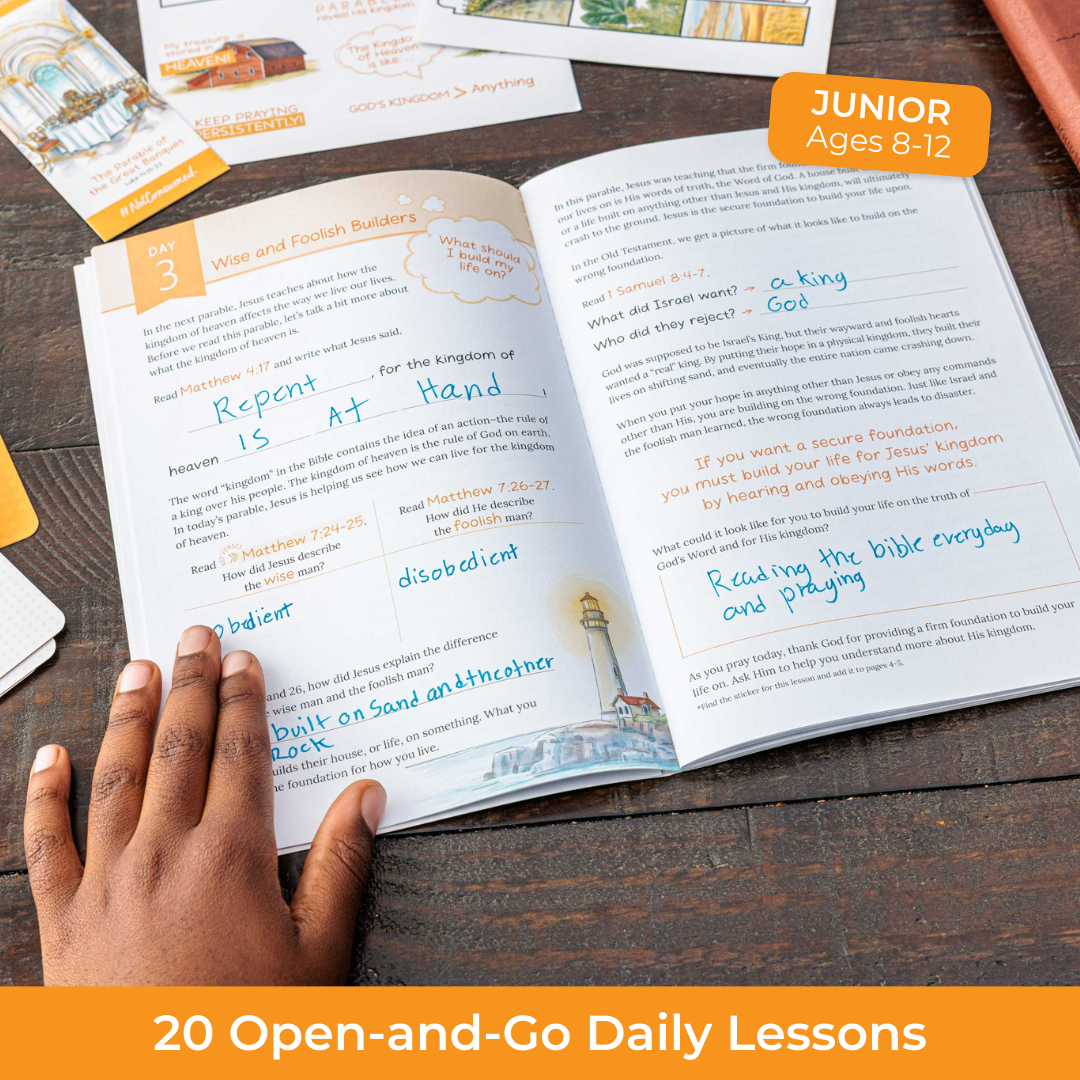 PARABLE
reveal His kingdom.
My treasure is
stored in
HEAVEN!
The Kingdom
of Heaven
is like. . .
KEEP PRAYING
PERSISTENTLY!
GOD'S KINGDOM > Anything
The Parable of
the Great Banquet
Luke 14:15-23
#NotConsumed
JUNIOR
Ages 8-12
DAY
3
Wise and Foolish Builders
What should
I build my
life on?
In the next parable, Jesus teaches about how the
kingdom of heaven affects the way we live our lives.
Before we read this parable, let's talk a bit more about
what the kingdom of heaven is.
Read Matthew 4:17 and write what Jesus said.
Repent , for the kingdom of
heaven is At Hand !
The word "kingdom" in the Bible contains the idea of an action–the rule of
a king over his people. The kingdom of heaven is the rule of God on earth.
In today's parable, Jesus is helping us see how we can live for the kingdom
of heaven.
Read Matthew 7:24-25.
How did Jesus describe
the wise man?
Read Matthew 7:26-27.
How did He describe
the foolish man?
obedient
disobedient
and 26, how did Jesus explain the difference
wise man and the foolish man?
built on Sand and thcother
Rock
uilds their house, or life, on something. What you
he foundation for how you live.
In this parable, Jesus was teaching that the firm
our lives on is His words of truth, the Word of God. A house built
or a life built on anything other than Jesus and His kingdom, will ultimately
crash to the ground. Jesus is the secure foundation to build your life upon.
In the Old Testament, we get a picture of what it looks like to build on the
wrong foundation.
Read 1 Samuel 8:4-7.
What did Israel want? → a king
Who did they reject? → God
God was supposed to be Israel's King, but their wayward and foolish hearts
wanted a "real" king. By putting their hope in a physical kingdom, they built their
lives on shifting sand, and eventually the entire nation came crashing down.
When you put your hope in anything other than Jesus or obey any commands
other than His, you are building on the wrong foundation. Just like Israel and
the foolish man learned, the wrong foundation always leads to disaster.
If you want a secure foundation,
you must build your life for Jesus' kingdom
by hearing and obeying His words.
What could it look like for you to build your life on the truth of
God's Word and for His kingdom?
Reading the bible everyday
and praying
As you pray today, thank God for providing a firm foundation to build your
life on. Ask Him to help you understand more about His kingdom.
*Find the sticker for this lesson and add it to pages 4-5.
20 Open-and-Go Daily Lessons